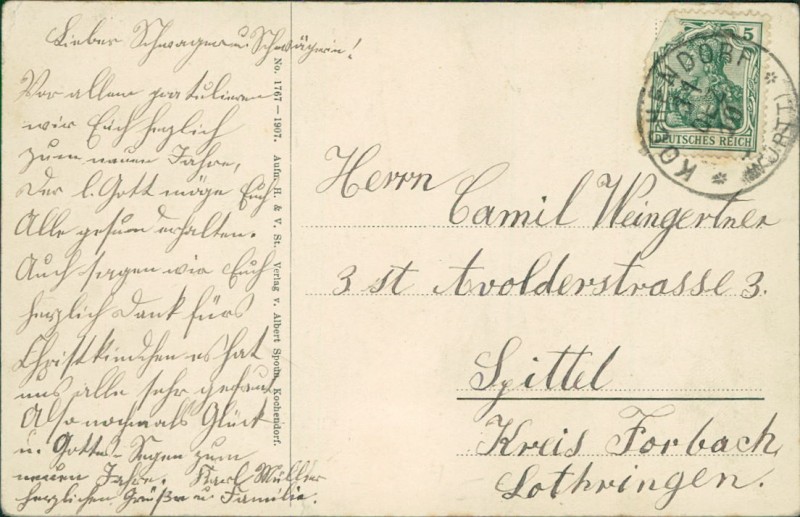 Lieber Schwager u. Schwägerin!
Vor allem gratulieren
wir Euch herzlich
zum neuen Jahre,
Der l. Gott möge Euch
Alle gesund erhalten.
Auch sagen wir Euch
herzlich Dank fürs
Christkindchen es hat
uns alle sehr gefreut
Also nochmals Glück
u. Gottes-Segen zum
neuen Jahre. Karl Müller
herzlichen Grüße u. Familie.
No. 1767 — 1907. Aufn. H. & V. St. Verlag v. Albert Spohn, Kochendorf.
5
DEUTSCHES REICH
KOCHENDORF
(WÜRTT.)
Herrn
Camil Weingertner
3 st Avolderstrasse 3.
Spittel
Kreis Forbach
Lothringen.